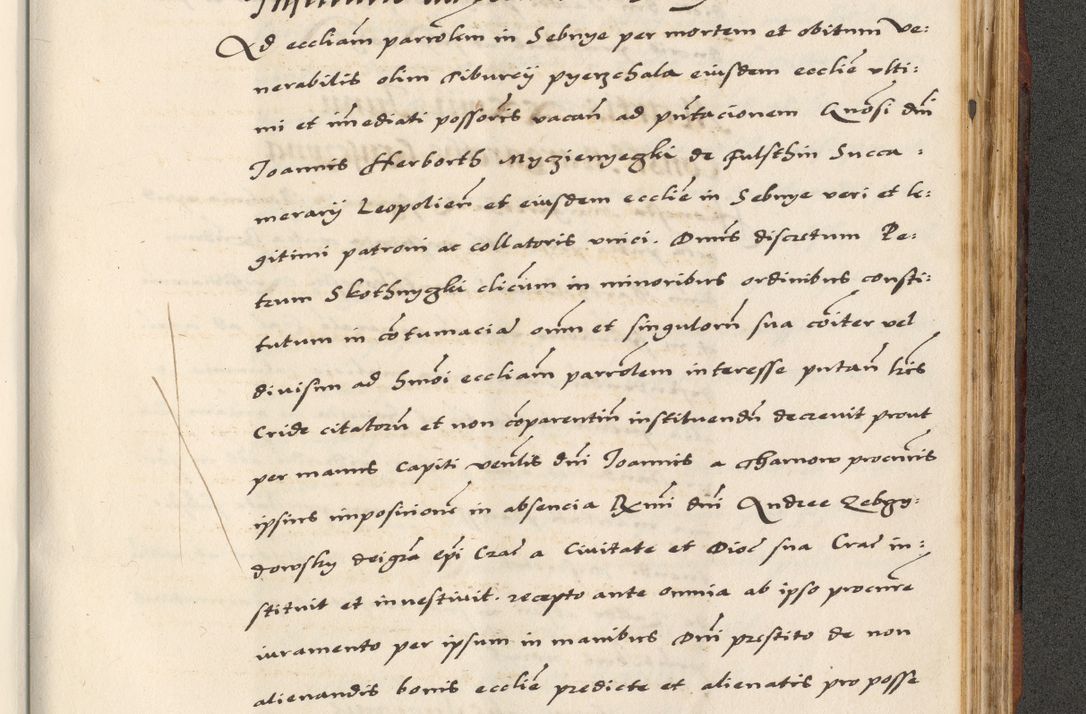 Ad eccliam parrolem in Sebnye per mortem et obitum Ve:
nerabilis olim Tiburcij pyerzchala eiusdem ecclie vlti:
mi et imediati possoris vacan ad pntacionem Gnosi dni
Joannis Herborth Myzienyeczki de Fulsthin Succa:
merarij Leopolien et eiusdem ecclie in Sebnye veri et le:
gitimi patroni ac collatoris vnici. Dnus discretum Pe:
trum Skothnyczki clicum in minoribus ordinibus consti:
tutum in cotumacia oim et singulorum sua coiter vel
diuisim ad hmoi eccliam parrolem interesse putan lris
Cride citatorum et non comparentium instituendum decreuit prout
per manus Capiti venlis dni Joannis a Tharnow procuris
ipsius imposicione in absencia Rmi dni Andree Zebrzy:
dowsky dei gra epi Crac a Ciuitate et Dioc sua Crac in:
stituit et inuestiuit. recepto ante omnia ab ipso procure
iuramento per ipsum in manibus Dni prestito de non
alienandis bonis ecclie predicte et alienatis pro posse